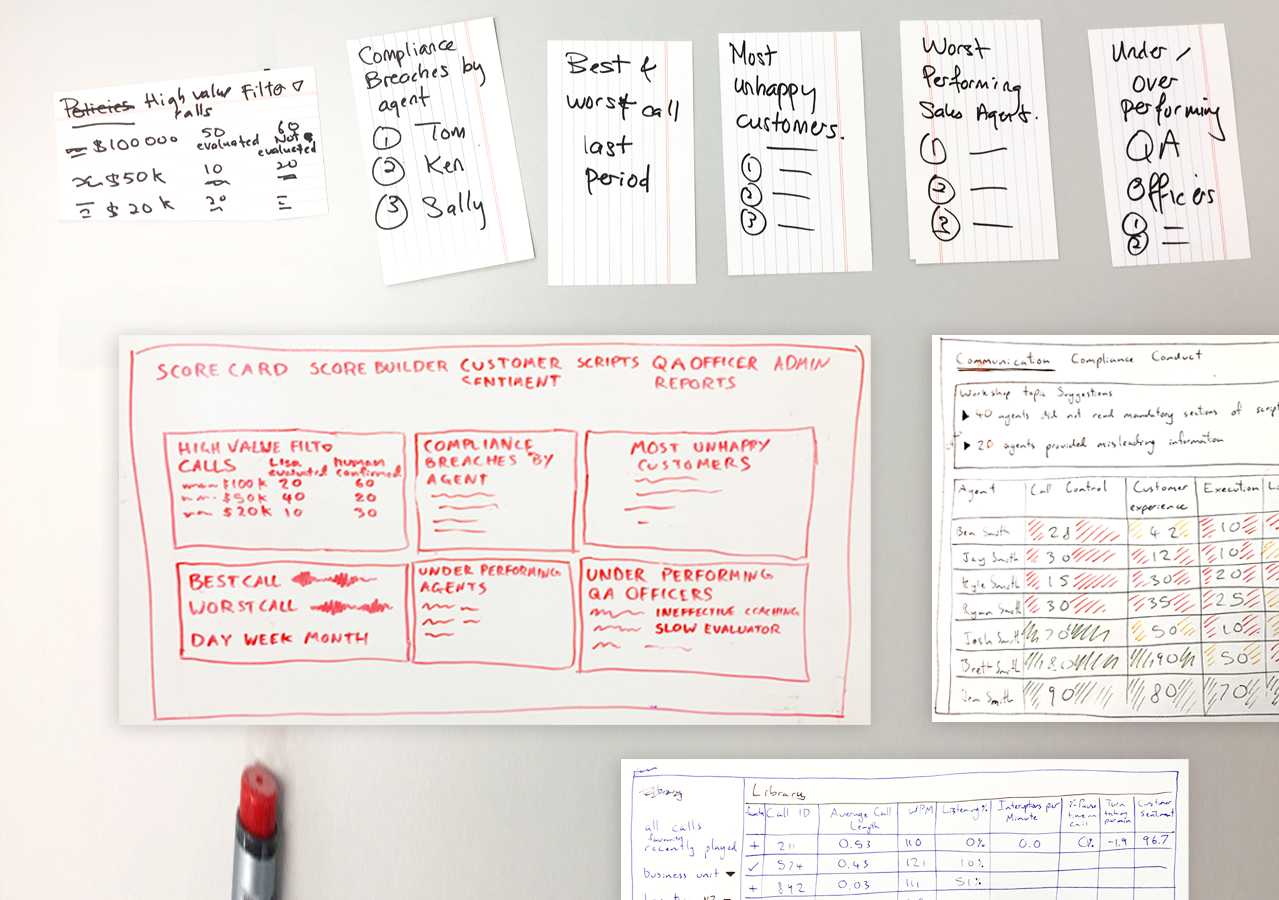 Policies High value Filter ▽
calls
$100000 50 evaluated 60 Not evaluated
$50k 10 20
$20k 20
Compliance
Breaches by
agent
① Tom
② Ken
③ Sally
Best &
worst call
last
period
Most
unhappy
customers.
①
②
③
Worst
Performing
Sales Agent.
①
②
③
Under /
over
performing
QA
Officers
①
②
SCORE CARD SCORE BUILDER CUSTOMER SENTIMENT SCRIPTS QA OFFICER REPORTS ADMIN
HIGH VALUE FILT▽
CALLS Lisa evaluated human confirmed
$100k 20 60
$50k 40 20
$20k 10 30
COMPLIANCE
BREACHES BY
AGENT
MOST UNHAPPY
CUSTOMERS
BEST CALL
WORST CALL
DAY WEEK MONTH
UNDER PERFORMING
AGENTS
UNDER PERFORMING
QA OFFICERS
INEFFECTIVE COACHING
SLOW EVALUATOR
Communication Compliance Conduct
Workshop topic Suggestions
▶ 40 agents did not read mandatory sections of script
▶ 20 agents provided misleading information
Agent Call Control Customer experience Execution Li
Ben Smith 28 42 10
Jay Smith 30 12 10
Kyle Smith 15 30 20
Ryan Smith 30 35 25
Josh Smith 70 50 10
Brett Smith 80 90 50
Jen Smith 90 80 70
Library
all calls
favourite
recently played
business unit ▼
Call ID Average Call Length WPM Listening % Interuptions per Minute % Pause time in call Turn taking per min Customer Sentiment
+ 211 0.53 110 0% 0.0 0% -1.9 96.7
✓ 574 0.43 121 10%
+ 892 0.03 111 51%